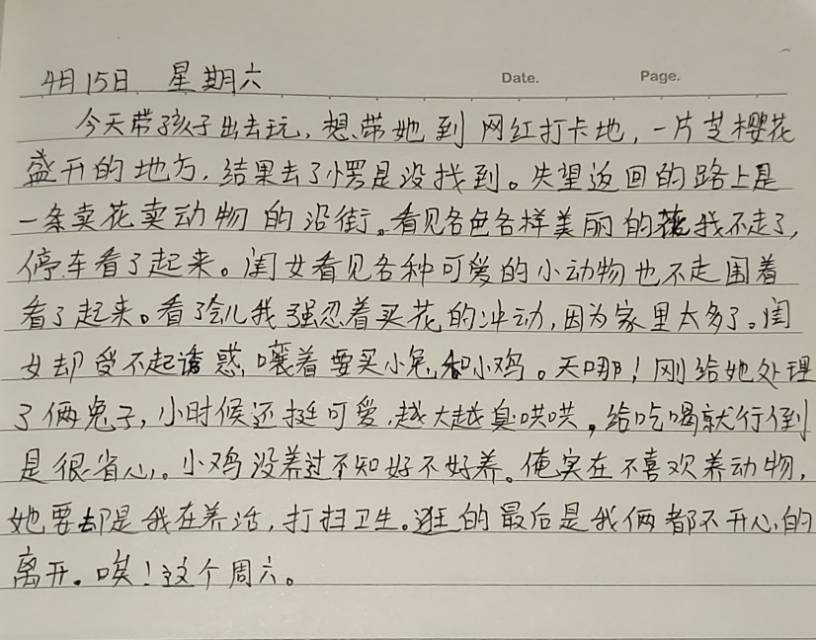 4月15日 星期六 Date. Page.
今天带孩子出去玩,想带她到网红打卡地,一片芝樱花
盛开的地方,结果去了愣是没找到。失望返回的路上是
一条卖花卖动物的沿街。看见各色各样美丽的花我不走了,
停车看了起来。闺女看见各种可爱的小动物也不走围着
看了起来。看了会儿我强忍着买花的冲动,因为家里太多了。闺
女却受不起诱惑,嚷着要买小兔和小鸡。天哪!刚给她处理
了俩兔子,小时候还挺可爱,越大越臭哄哄,给吃喝就行倒
是很省心。小鸡没养过不知好不好养。俺实在不喜欢养动物,
她要却是我在养活,打扫卫生。逛的最后是我俩都不开心的
离开。唉!这个周六。